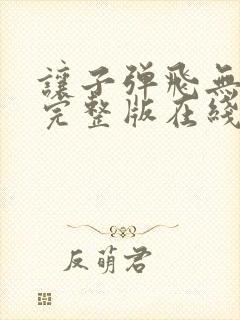 讓子弹飛無
完整版在綫
反萌君